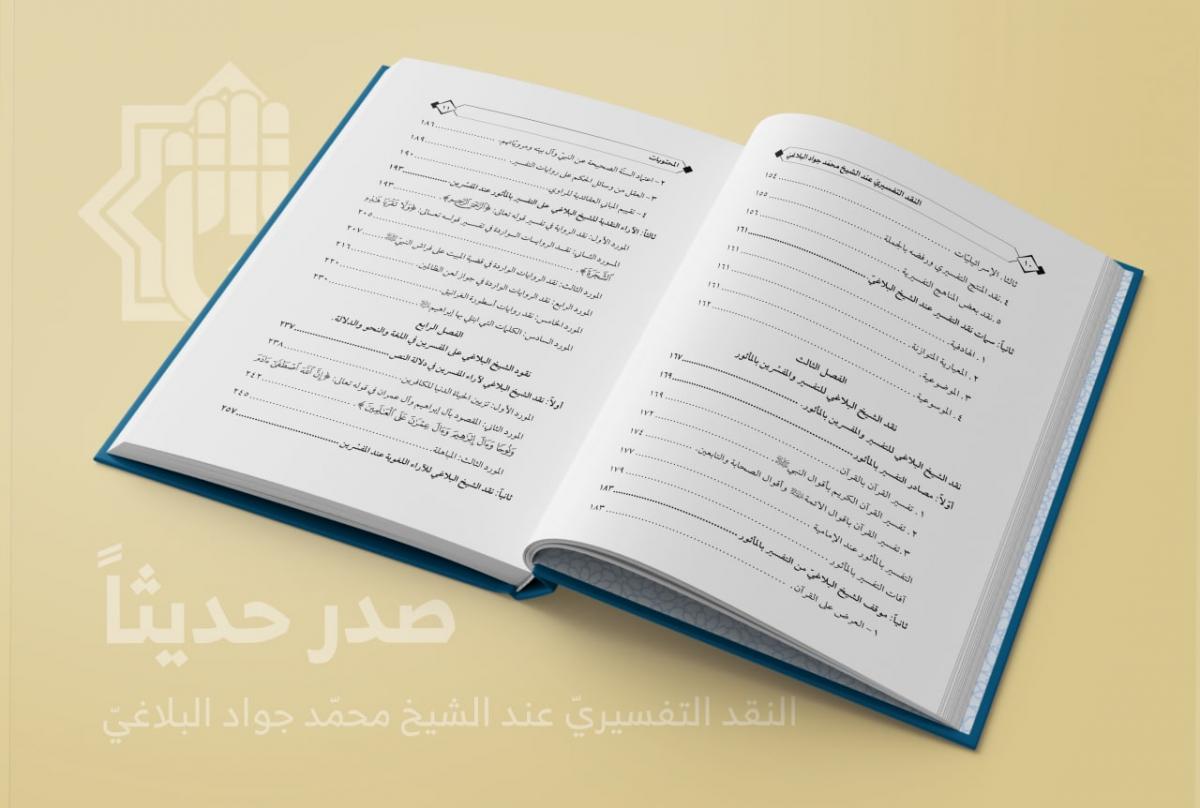 النقد التفسيريّ عند الشيخ محمد جواد البلاغي
١٠
ثالثا. الإسرائيليّات ١٥٤
٤. نقد المنهج التفسيري ورفضه بالجملة ١٥٥
٥. نقد بعض المناهج التفسيرية ١٥٦
ثانياً: سمات نقد التفسير عند الشيخ البلاغيّ ١٦١
١. الهادفية. ١٦١
٢. المعيارية المتوازنة. ١٦١
٣. الموضوعية. ١٦١
٤. الموسوعية. ١٦٢
الفصل الثالث
نقد الشيخ البلاغي للتفسير والمفسّرين بالمأثور
نقد الشيخ البلاغي للتفسير والمفسرين بالمأثور. ١٦٧
أوّلاً: مصادر التفسير بالمأثور ١٦٩
١. تفسير القرآن بالقرآن ١٦٩
٢. تفسير القرآن الكريم بأقوال النبي ﷺ ١٧٢
٣. تفسير القرآن بأقوال الائمة وأقوال الصحابة والتابعين. ١٧٤
التفسير بالمأثور عند الإمامية ١٧٧
آفات التفسير بالمأثور ١٧٩
ثانياً: موقف الشيخ البلاغيّ من التفسير بالمأثور ١٨٣
١ – العرض على القرآن. ١٨٣
المحتويات
٢ – اعتماد السنّة الصحيحة عن النبيّ وآل بيته ومروياتهم. ١٨٦
٣ – العقل من وسائل الحكم على روايات التفسير. ١٨٩
٤ – تقييم المباني العقائدية للراوي. ١٩٠
ثالثاً: الآراء النقدية للشيخ البلاغي على التفسير بالمأثور عند المفسّرين ١٩٣
المورد الأول: نقد الرواية في تفسير قوله تعالى: ﴿الرَّحْمَنِ الرَّحِيمِ﴾. ١٩٣
المورد الثاني: نقد الروايات الواردة في تفسير قوله تعالى: ﴿وَلَا تَقْرَبَا هَذِهِ
الشَّجَرَةَ﴾. ٢٠٥
المورد الثالث: نقد الروايات الواردة في قضية المبيت على فراش النبيّ ﷺ ٢٠٧
المورد الرابع: نقد الروايات الواردة في جواز لعن الظالمين. ٢١٦
المورد الخامس: نقد روايات أسطورة الغرانيق. ٢٢٠
المورد السادس: الكلمات التي ابتلي بها إبراهيم ٢٣٠
الفصل الرابع
نقود الشيخ البلاغي على المفسرين في اللغة والنحو والدلالة.
أولاً: نقد الشيخ البلاغي لآراء المفسرين في دلالة النص ٢٣٧
المورد الأول: تزيين الحياة الدنيا للكافرين ٢٣٨
المورد الثاني: المقصود بآل إبراهيم وآل عمران في قوله تعالى: ﴿إِنَّ اللَّهَ اصْطَفَى آدَمَ
وَنُوحًا وَآلَ إِبْرَاهِيمَ وَآلَ عِمْرَانَ عَلَى الْعَالَمِينَ﴾. ٢٤٢
المورد الثالث: المباهلة. ٢٤٥
ثانياً: نقد الشيخ البلاغي للآراء اللغوية عند المفسّرين ٢٥٧
صدر حديثاً
النقد التفسيريّ عند الشيخ محمّد جواد البلاغيّ